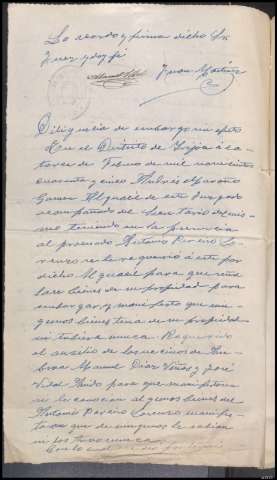 Lo acordo y firma dicho Sr.
Juez doy fé
Juan Martinez
Diligencia de embargo sin efeto
En el Distrito de à ca
torce de Febrero de mil novecientos
cuarenta y cinco Alguacil de este Juzgado
acompañado del Secretario del mis
mo teniendo en la presencia
al procesado Antonio Pereño Lo
renzo se le requirió à este por
dicho Alguacil para que seña
lase bienes de su propiedad para
embargar, y manifesto que nin
gunos bienes tena de su propiedad
ni tubiese nunca. Requerido
al ausilio de los vecinos de
Manuel Diaz Viñas y José
Vidal para que manifestara
si le conocian algunos bienes del
Antonio Pereño Lorenzo manifes
taron que de ningunos le sabian
ni los tuvo nunca
Con lo cual se dio por